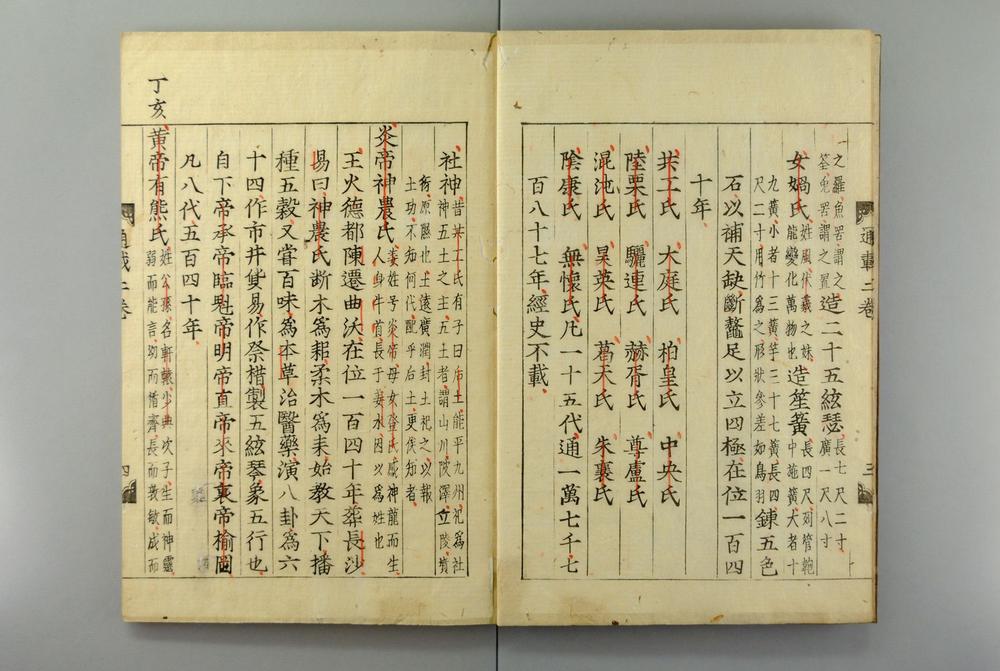 之羅魚罟謂之
筌兎罟謂之罝造二十五絃瑟長七尺二寸
廣一尺八寸
女媧氏姓風伏羲之妹
能變化萬物也造笙簧長四尺列管匏
中施簧大者十
九黃小者十三簧竽三十七簧長四
尺二寸用竹爲之形狀參差如鳥羽錬五色
石以補天缺斷鼇足以立四極在位一百四
十年
共工氏 大庭氏 柏皇氏 中央氏
陸栗氏 驪連氏 赫胥氏 尊盧氏
混沌氏 昊英氏 葛天氏 朱襄氏
陰康氏 無懷氏凡一十五代通一萬七千七
百八十七年經史不載
通載二卷
三
社神昔共工氏有子曰后土能平九州祀爲社
神五土之主五土者謂山川陵澤立陵墳
衍原隰也土遠廣濶封土祀之以報
土功不知何代配乎后土更俟知者
炎帝神農氏姜姓号炎帝母女登氏感神龍而生
人身牛首長于姜水因以爲姓也
王火德都陳遷曲沃在位一百四十年葬長沙
易曰神農氏斷木爲耜柔木爲耒始教天下播
種五穀又嘗百味爲本草治醫藥演八卦爲六
十四作市井貿易作祭楷製五絃琴象五行也
自下帝承帝臨魁帝明帝直帝來帝裏帝榆罔
凡八代五百四十年
丁亥
黃帝有熊氏姓公孫名軒轅少典次子生而神靈
弱而能言幼而脩齊長而敦敏成而
通載二卷
四